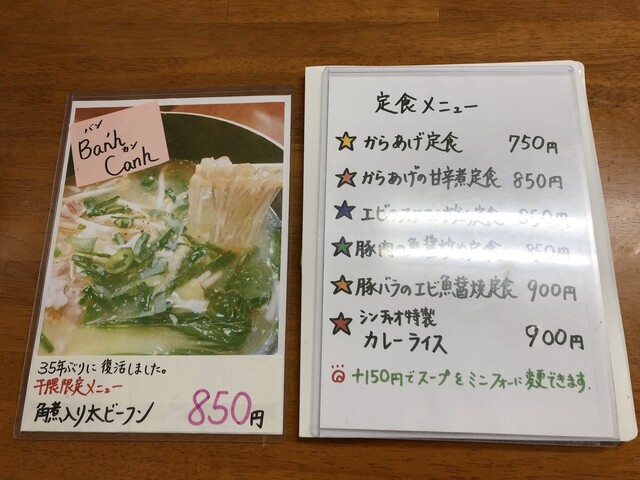 バン
Bánh
カン
Canh
35年ぶりに復活しました。
干隈限定メニュー
角煮入り太ビーフン 850円
定食メニュー
からあげ定食 750円
からあげの甘辛煮定食 850円
エビの 定食 850円
豚肉の魚醤炒め定食 850円
豚バラのエビ魚醤焼定食 900円
シンチャオ特製
カレーライス 900円
+150円でスープをミニフォーに変更できます。